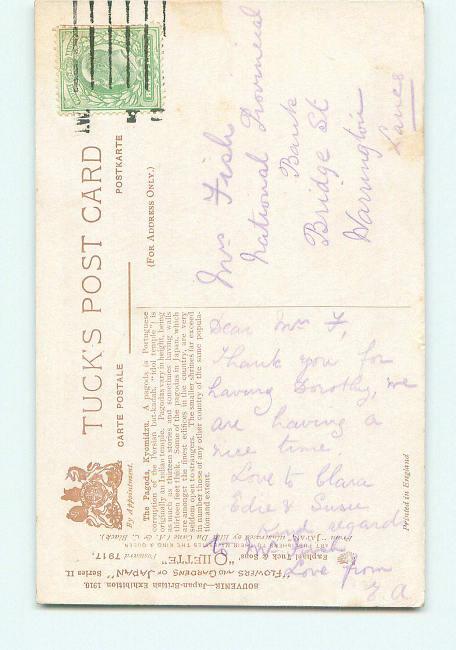 TUCK'S POST CARD
CARTE POSTALE
POSTKARTE
(FOR ADDRESS ONLY.)
By Appointment.
Mrs Fish
National Provincial
Bank
Bridge St
Warrington
Lancs
The Pagoda, Kyomidzu. A pagoda is Portuguese
corruption of the Persian but-kadah, "idol temple"; is
originally an Indian temple. Pagodas vary in height, being
as much as thirteen stories and sometimes having walls
thirteen feet thick. Some of the pagodas in Japan, which
are amongst the finest edifices in the country, are very
seldom open to strangers. The smaller shrines far exceed
in number those of any other country of the same popula-
tion and extent.
Dear Mrs F,
Thank you for
having Dorothy, we
are having a
nice time
Love to Clara
Edie & Susie
Kind regards
to Mr Fish
Love from
E. A
Printed in England
SOUVENIR—Japan-British Exhibition 1910.
"FLOWERS AND GARDENS OF JAPAN" Series II.
Raphael Tuck & Sons' "OILETTE" Postcard 7917.
ART PUBLISHERS TO THEIR MAJESTIES THE KING & QUEEN
From "JAPAN" illustrated by Ella Du Cane (A. & C. Black).